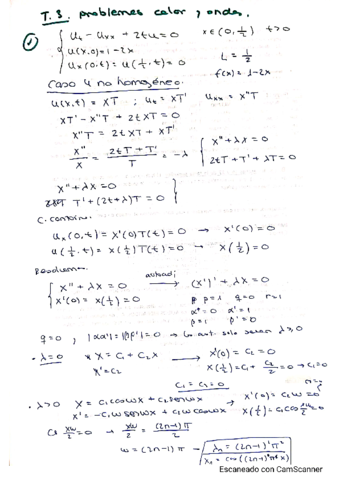 T.3. problemas calor y ondas.
① { ut - uxx + 2tu = 0   x∈(0, 1/2)   t>0
u(x,0) = 1-2x   L = 1/2
ux(0,t) = u(1/2,t) = 0   f(x) = 1-2x
Caso 4 no homogéneo.
u(x,t) = XT ; ut = XT'   uxx = X''T
XT' - X''T + 2tXT = 0
X''T = 2tXT + XT'
X''/X = (2tT + T')/T = -λ   { X'' + λX = 0
2tT + T' + λT = 0
X'' + λX = 0
T' + (2t+λ)T = 0 }
C. contorno.
ux(0,t) = X'(0)T(t) = 0 → X'(0) = 0
u(1/2,t) = X(1/2)T(t) = 0 → X(1/2) = 0
Resolvemos.
{ X'' + λX = 0   autoadj → (X')' + λX = 0
X'(0) = X(1/2) = 0   p=1   q=0   r=1
α=0   α'=1
β=1   β'=0
q=0 ; |αα'| = |ββ'| = 0 → los aut. solo seran λ≥0
· λ=0   X = C1 + C2x → X'(0) = C2 = 0
X' = C2   X(1/2) = C1 + C2/2 = 0 → C1 = 0
C1 = C2 = 0
· λ>0   X = C1cosωx + C2senωx → X'(0) = C2ω = 0
X' = -C1ωsenωx + C2ωcosωx   X(1/2) = C1cos
→ (2n-1)π/2
ω = (2n-1)π → λn = (2n-1)²π²
Escaneado con CamScanner